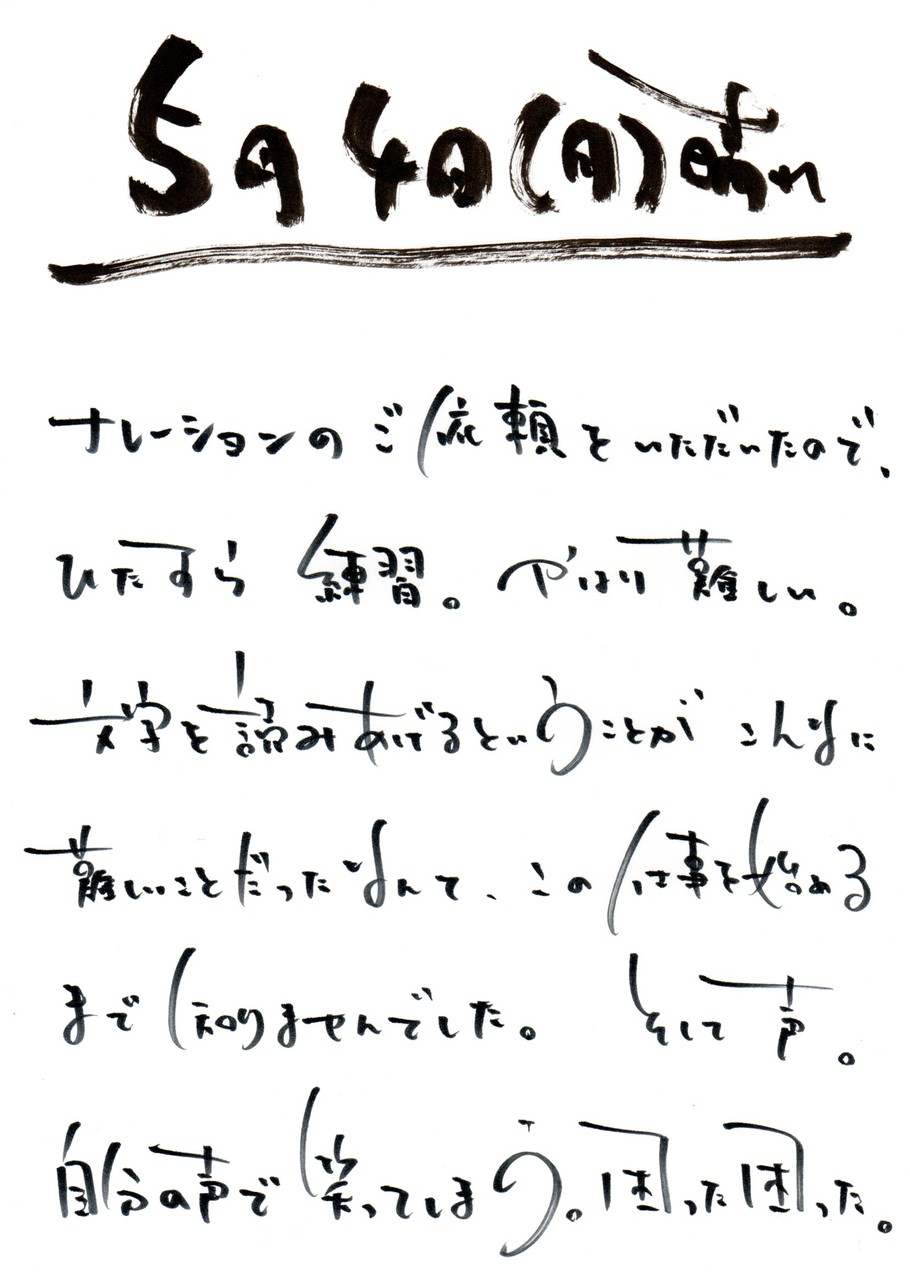 5月4日(月)晴れ
ナレーションのご依頼をいただいたので、
ひたすら 練習。やはり難しい。
文字を読みあげるということが こんなに
難しいことだったなんて、この仕事を始める
まで知りませんでした。 そして声。
自分の声で笑ってしまう。困った困った。